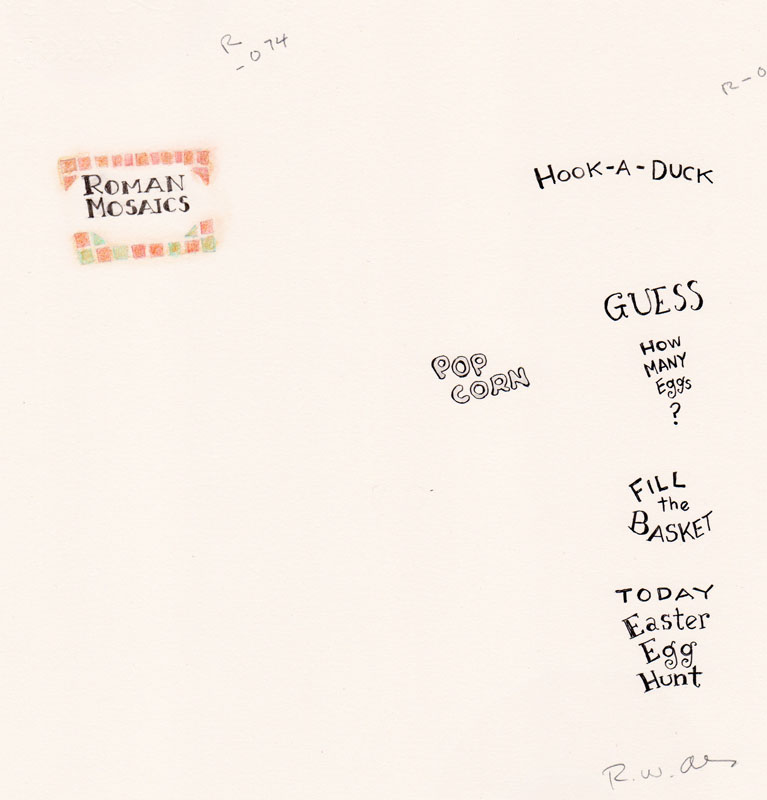 R
-074
R-0
ROMAN
MOSAICS
HOOK-A-DUCK
GUESS
HOW
MANY
Eggs
?
POP
CORN
FILL
the
BASKET
TODAY
Easter
Egg
Hunt
R.W.